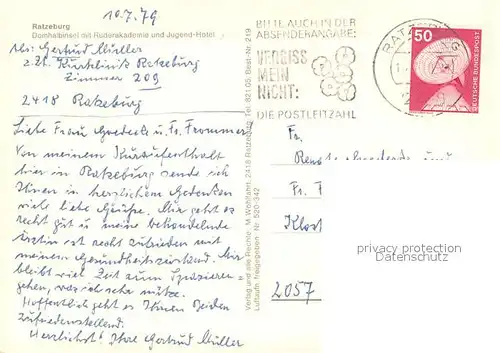 10.7.79
Ratzeburg
Domhalbinsel mit Ruderakademie und Jugend-Hotel
Abs: Gertrud Müller
z.Zt. Kurklinik Ratzeburg
Zimmer 209
2418 Ratzeburg
Liebe Frau Goedecke u. Fr. Frommer
Von meinem Kuraufenthalt
hier in Ratzeburg sende ich
Ihnen in herzlichem Gedenken
viele liebe Grüße. Mir geht es
recht gut u meine behandelnde
Ärztin ist recht zufrieden mit
meinem Gesundheitszustand. Mir
bleibt viel Zeit zum Spazieren=
gehen, was ich sehr nütze.
Hoffentlich geht es Ihnen beiden
zufriedenstellend.
Herzlichst Ihre Gertrud Müller
Verlag und alle Rechte: M. Wohlfahrt, 2418 Ratzeburg, Tel. 821 05, Best.-Nr. 219
Luftaufn. freigegeben Nr. 520-342
BITTE AUCH IN DER
ABSENDERANGABE:
VERGISS
MEIN
NICHT:
DIE POSTLEITZAHL
RATZEBURG
50
DEUTSCHE BUNDESPOST
Fr.
Fr. F
Klost
2057
privacy protection
Datenschutz